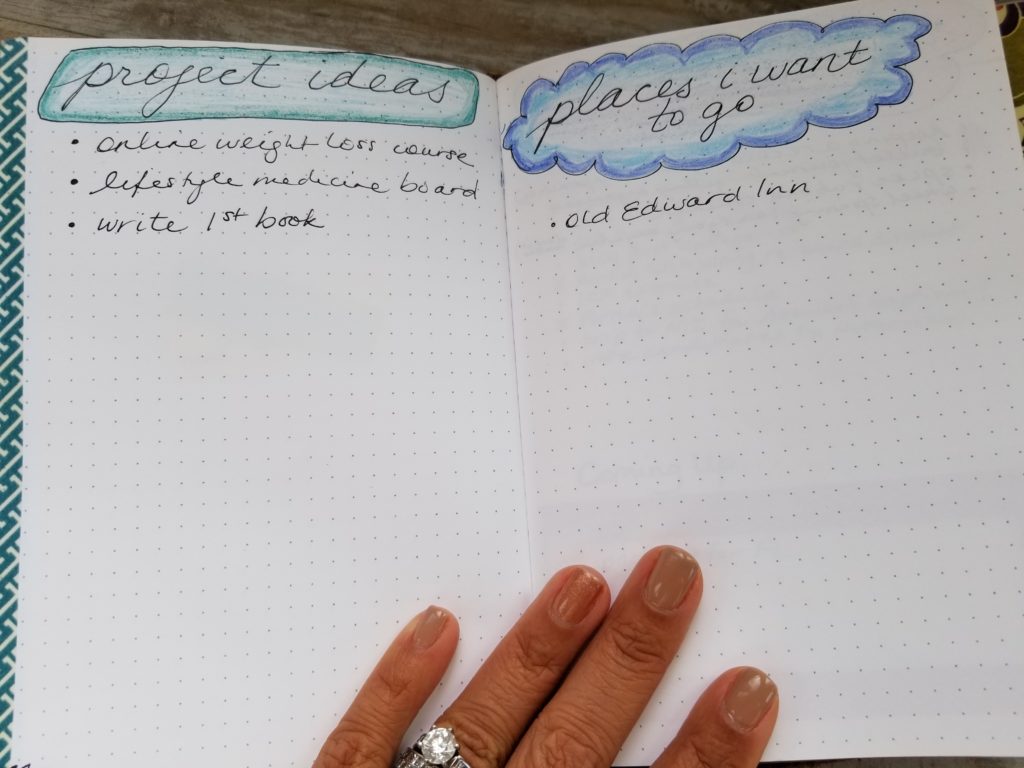 project ideas
• online weight loss course
• lifestyle medicine board
• write 1st book
places i want
to go
• Old Edward Inn
Coming Up